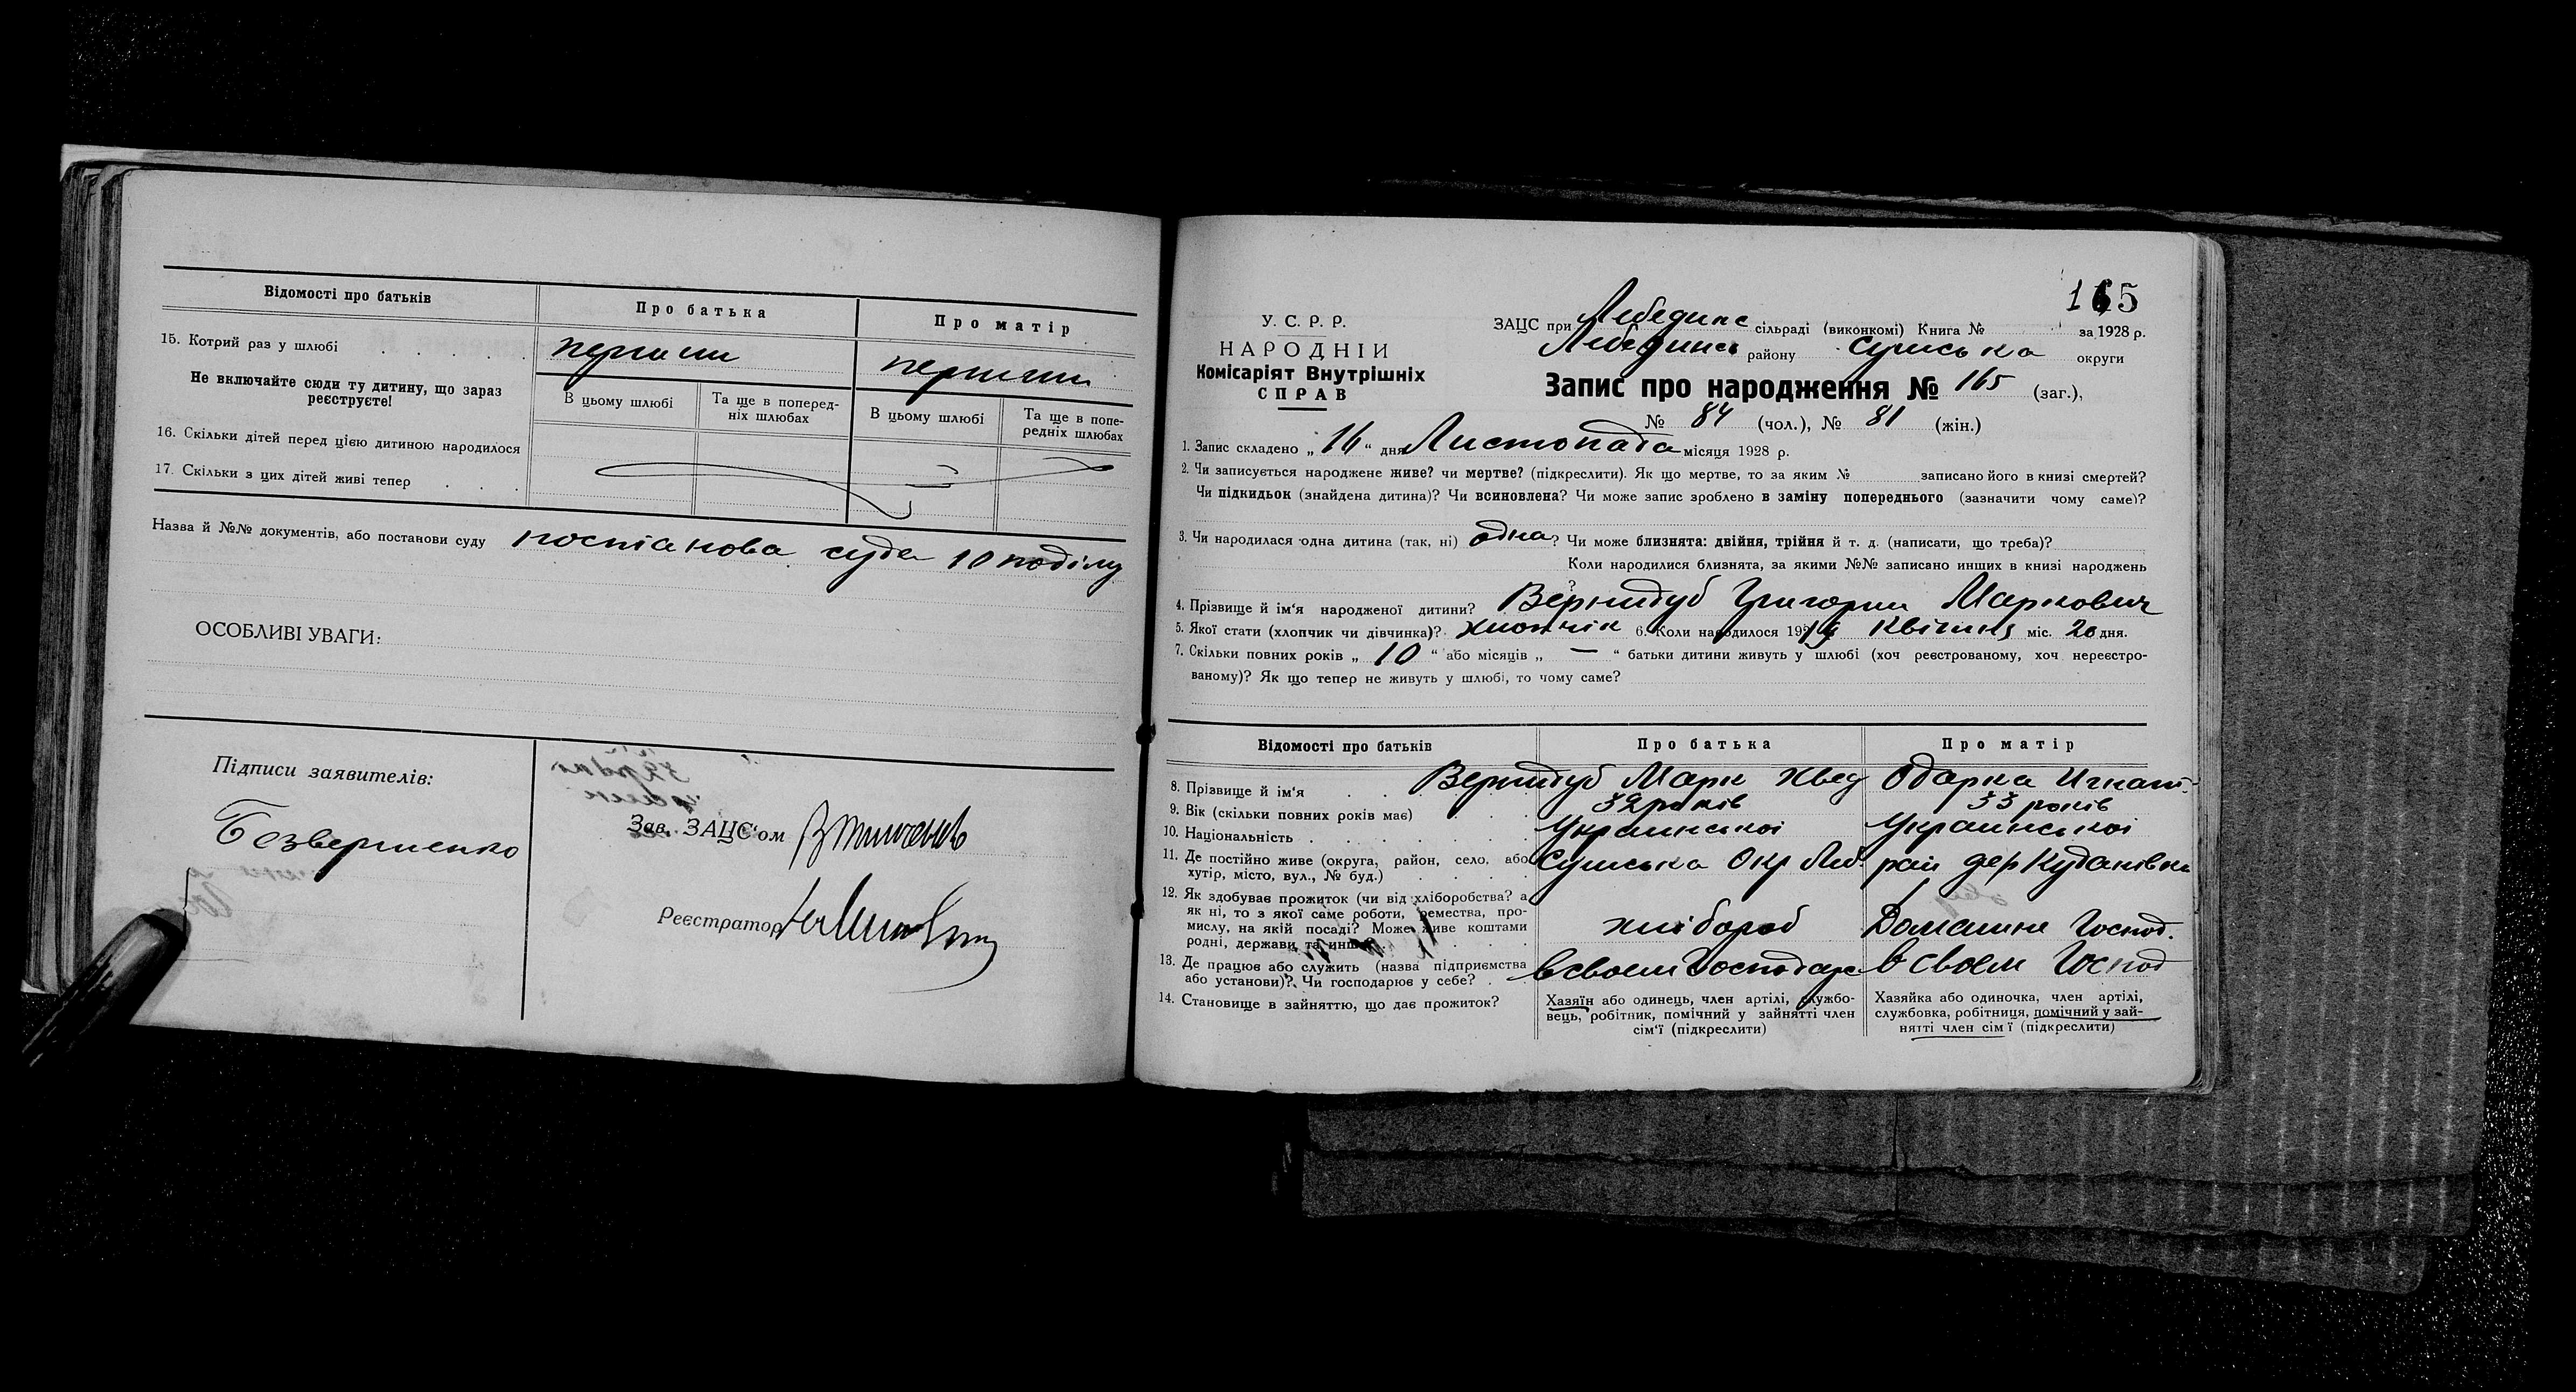 Відомості про батьків
Про батька
Про матір
15. Котрий раз у шлюбі
перший
перший
Не включайте сюди ту дитину, що зараз реєструєте!
В цьому шлюбі
Та ще в поперед-
ніх шлюбах
В цьому шлюбі
Та ще в попе-
редніх шлюбах
16. Скільки дітей перед цією дитиною народилося
17. Скільки з цих дітей живі тепер
Назва й №№ документів, або постанови суду постанова суда 10 поділу
ОСОБЛИВІ УВАГИ:
Підписи заявителів:
Безвершенко
Зав. ЗАЦС'ом
Реєстратор
165
У. С. Р. Р.
НАРОДНІЙ
Комісаріят Внутрішніх
СПРАВ
ЗАЦС при Лебединс сільраді (виконкомі) Книга № за 1928 р.
Лебединс району Сумська округи
Запис про народження № 165 (заг.),
№ 84 (чол.), № 81 (жін.)
1. Запис складено „ 16 “ дня Листопада місяця 1928 р.
2. Чи записується народжене живе? чи мертве? (підкреслити). Як що мертве, то за яким № записано його в книзі смертей?
Чи підкидьок (знайдена дитина)? Чи всиновлена? Чи може запис зроблено в заміну попереднього (зазначити чому саме)?
3. Чи народилася одна дитина (так, ні) одна? Чи може близнята: двійня, трійня й т. д. (написати, що треба)?
Коли народилися близнята, за якими №№ записано инших в книзі народжень
?
4. Прізвище й ім'я народженої дитини? Вернидуб Григорий Маркович
5. Якої стати (хлопчик чи дівчинка)? хлопчик 6. Коли народилося 19 Квітня міс. 20 дня.
7. Скільки повних років „ 10 “ або місяців „ — “ батьки дитини живуть у шлюбі (хоч реєстрованому, хоч нереєстро-
ваному)? Як що тепер не живуть у шлюбі, то чому саме?
Відомості про батьків
Про батька
Про матір
8. Прізвище й ім'я
Вернидуб Марк Хвед
Одарка Игнат.
9. Вік (скільки повних років має)
32 років
33 років
10. Національність
Украинської
Украинської
11. Де постійно живе (округа, район, село, або
хутір, місто, вул., № буд.)
Сумська Окр Леб.
рай дер Куданівка
12. Як здобуває прожиток (чи від хліборобства? а
як ні, то з якої саме роботи, ремества, про-
мислу, на якій посаді? Може живе коштами
родні, держави та инше)
хлібороб
Домашне Господ.
13. Де працює або служить (назва підприємства
або установи)? Чи господарює у себе?
в своем Господарс
в своем Господ
14. Становище в зайняттю, що дає прожиток?
Хазяїн або одинець, член артілі, службо-
вець, робітник, помічний у зайнятті член
сім'ї (підкреслити)
Хазяйка або одиночка, член артілі,
службовка, робітниця, помічний у зай-
нятті член сім'ї (підкреслити)